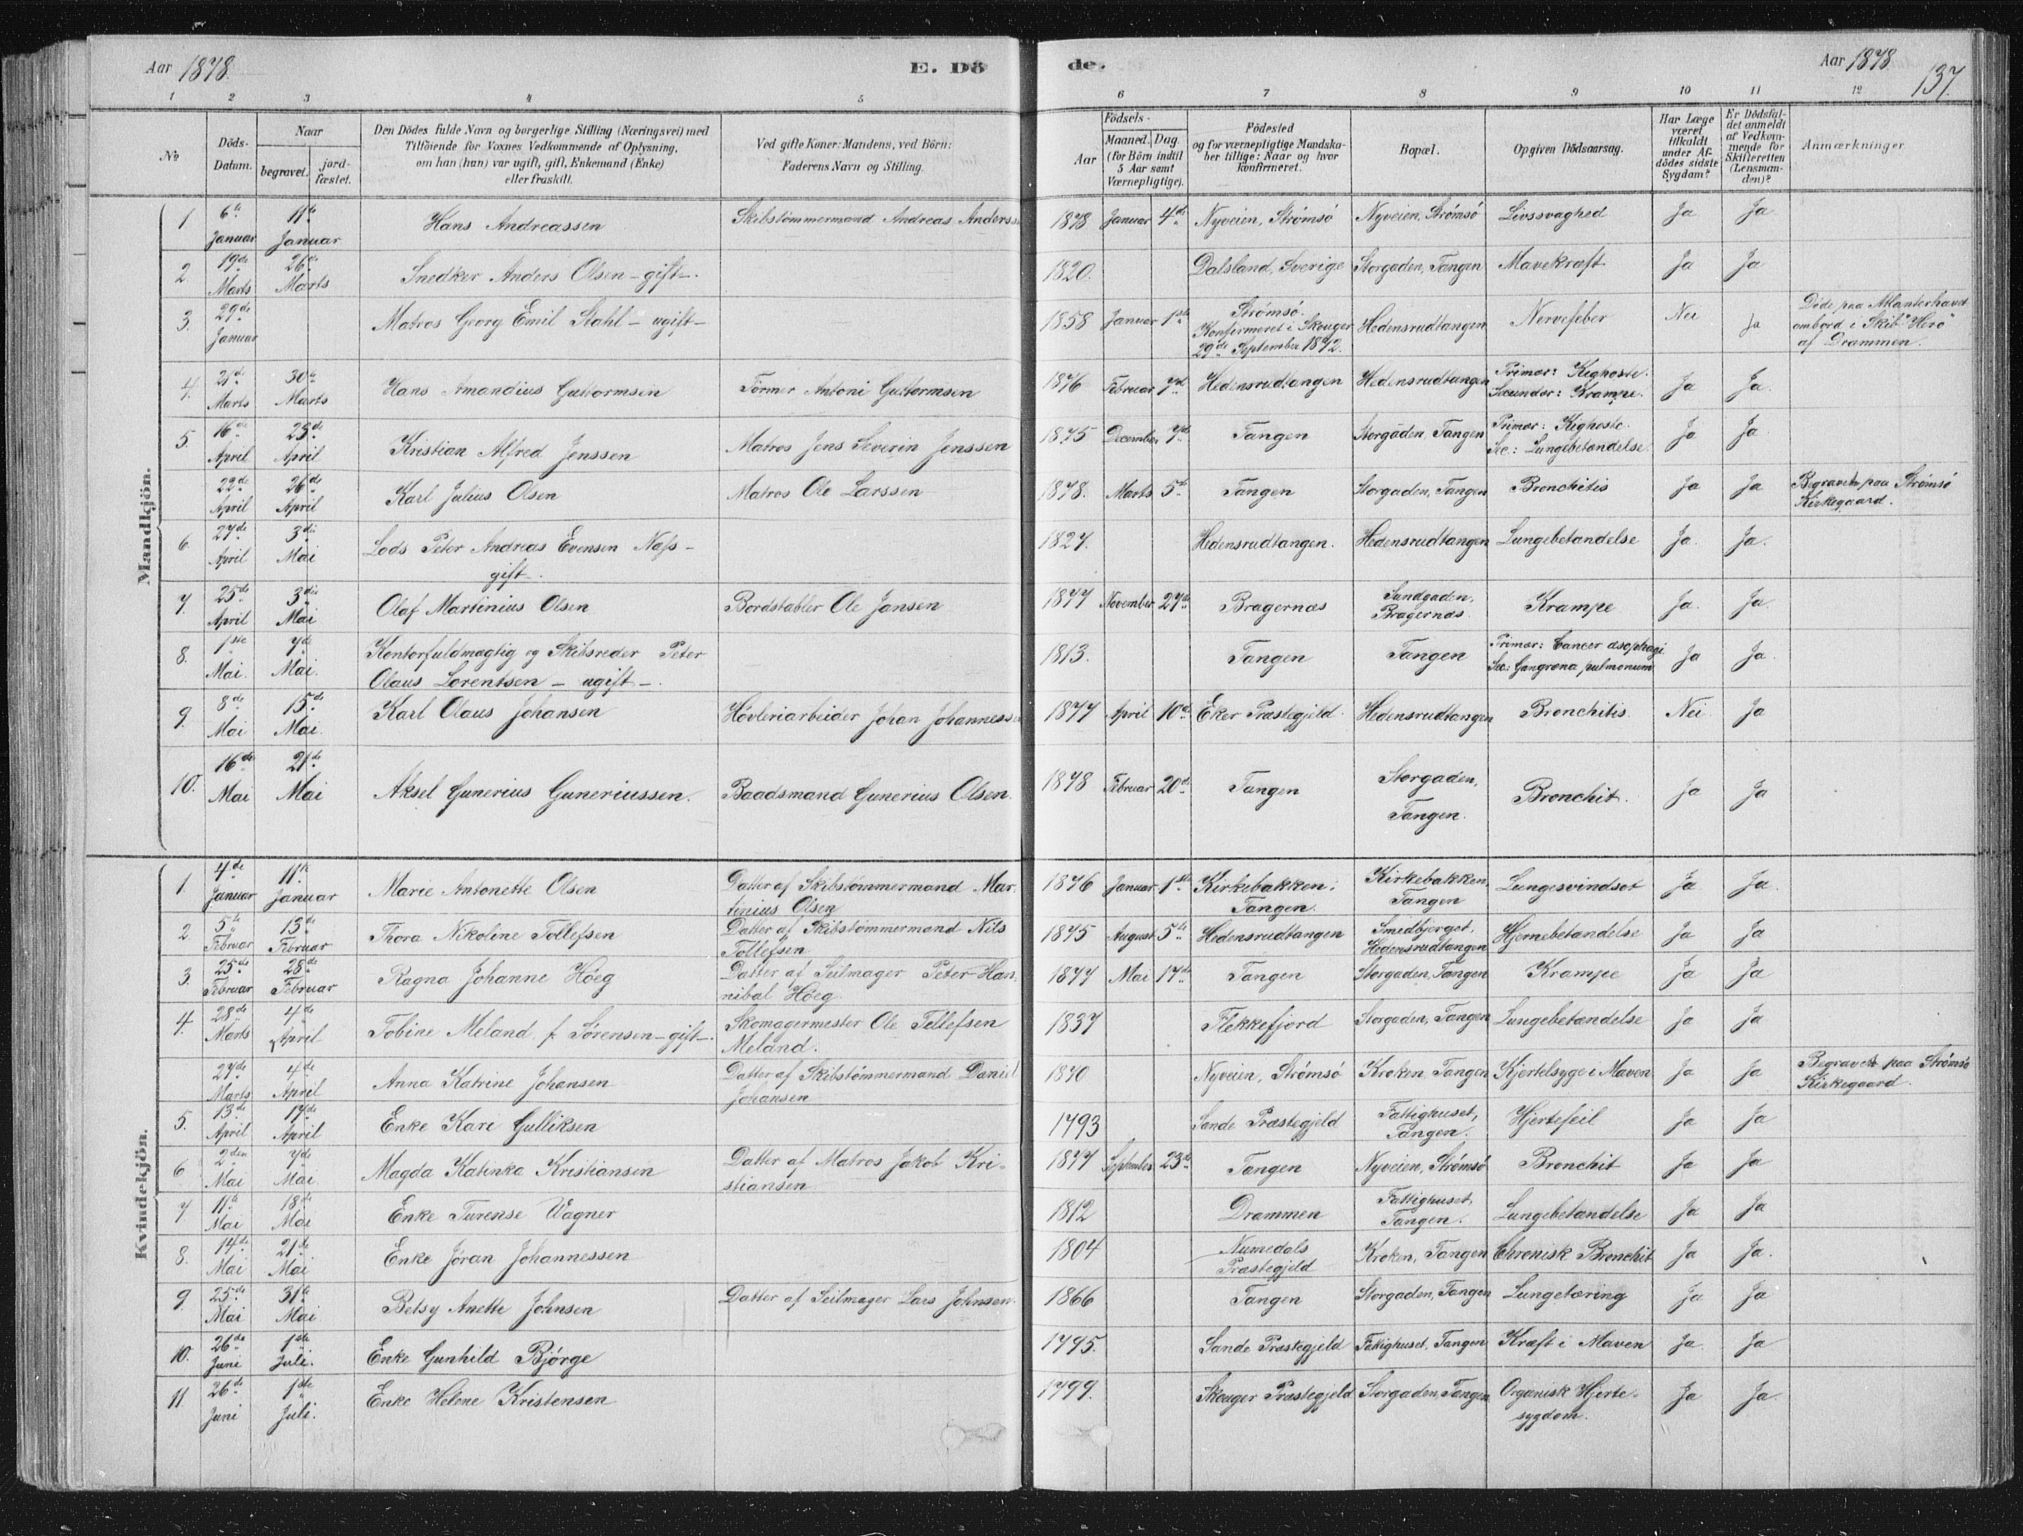 Aar 1878. E. Dö de. Aar 1878. 137.
1 2 3 4 5 6 7 8 9 10 11 12
No Döds-Datum. Naar begravet. jord-fæstet. Den Dödes fulde Navn og borgerlige Stilling (Næringsvei) med Tilföiende for Voxnes Vedkommende af Oplysning, om han (hun) var ugift, gift, Enkemand (Enke) eller fraskilt. Ved gifte Koner: Mandens, ved Börn: Faderens Navn og Stilling. Aar Födsels- Maaned. Dag. (for Börn indtil 5 Aar samt Værnepligtige). Födested og for værnepligtige Mandskaber tillige: Naar og hvor konfirmeret. Bopæl. Opgiven Dödsaarsag. Har Læge været tilkaldt under Afdödes sidste Sygdom? Er Dödsfaldet anmeldt af Vedkommende for Skifteretten (Lensmanden)? Anmærkninger
Mandkjön.
1 6te Januar 11te Januar Hans Andreassen Skibstømmermand Andreas Anderss 1878 Januar 4de Nyveien, Strømsø Nyveien, Strømsø Livssvaghed Ja Ja
2 19de Marts 26de Marts Snedker Anders Olsen - gift -. 1820. Dalsland, Sverige Storgaden, Tangen Mavekræft Ja Ja
3. 29de Januar Matros Georg Emil Stahl - ugift - 1858 Januar 1ste Strømsø. Konfirmeret i Skouger 29de September 1872. Hedensrudtangen Nervefeber Nei Ja Døde paa Atlanterhavet ombord i Skib "Hero" af Drammen.
4. 21de Marts 30te Marts Hans Amandius Guttormsen Tømer Antoni Guttormsen 1876 Februar 7de Hedensrudtangen Hedensrudtangen Primær: Kighoste. Secundær: Krampe. Ja Ja.
5. 16de April 25de April Kristian Alfred Jenssen Matros Jens Severin Jenssen 1875 December 7de Tangen Storgaden, Tangen Primær: Kighoste. Sec.: Lungebetændelse. Ja Ja.
22de April 26de April Karl Julius Olsen Matros Ole Larssen 1878. Marts 5te Tangen Storgaden, Tangen Bronchitis Ja Ja Begravet paa Strømsø Kirkegaard.
6. 27de April 3die Mai Lods Peter Andreas Evensen Næss - gift -. 1827. Hedensrudtangen. Hedensrudtangen Lungebetændelse Ja. Ja.
7. 25de April 3die Mai Olaf Martinius Olsen Bordstabler Ole Jansen 1877 November 27de Bragernæs Sundgaden, Bragernæs Krampe Ja. Ja.
8. 1ste Mai. 7de Mai. Kontorfuldmægtig og Skibsreder Peter Olaus Lorentsen - ugift -. 1813. Tangen Tangen Primær: Cancer æsophagi Sec: Gangræna pulmonum Ja Ja.
9. 8de Mai 15de Mai. Karl Olaus Johansen Høvleriarbeider Johan Johannessen 1877 April 10de Eker Præstegjeld. Hedensrudtangen Bronchitis. Nei Ja
10. 16de Mai 21de Mai Aksel Gunerius Guneriussen. Baadsmand Gunerius Olsen. 1878 Februar 20de Tangen Storgaden, Tangen. Bronchit. Ja Ja
Kvindekjön.
1. 4de Januar 11te Januar Marie Antonette Olsen Datter af Skibstømmermand Martinius Olsen 1876 Januar 1ste Kirkebakken, Tangen. Kirkebakken, Tangen Lungesvindsot Ja Ja.
2 5te Februar 13de Februar Thora Nikoline Tollefsen Datter af Skibstømmermand Nils Tollefsen 1875 August 5te Hedensrudtangen Smedbjerget, Hedensrudtangen Hjernebetændelse Ja Ja
3. 25de Februar 28de Februar Ragna Johanne Höeg Datter af Seilmager Peter Hannibal Höeg. 1877 Mai 17de Tangen Storgaden, Tangen Krampe Ja Ja
4. 28de Marts 4de April Tobine Meland f. Sørensen - gift -. Skomagermester Ole Tellefsen Meland. 1837 Flekkefjord Storgaden, Tangen Lungebetændelse Ja Ja
27de Marts 4de April Anna Katrine Johansen Datter af Skibstømmermand Daniel Johansen 1870 Nyveien, Strømsø Kroken, Tangen Kjertelsyge i Maven Ja Ja Begravet paa Strømsø Kirkegaard.
5. 13de April 17de April Enke Kari Gulliksen 1793 Sande Præstegjeld Fattighuset, Tangen. Hjertefeil Ja Ja
6 2den Mai 7de Mai. Magda Katinka Kristiansen Datter af Matros Jakob Kristiansen 1877 September 23de Tangen Nyveien, Strømsø Bronchit Ja Ja.
7 11te Mai 18de Mai Enke Turense Wagner 1812 Drammen Fattighuset, Tangen. Lungebetændelse Ja Ja
8. 14de Mai 21de Mai Enke Jøran Johannessen 1804 Numedals Præstegjeld Kroken, Tangen Chronisk Bronchit Ja Ja.
9. 25de Mai 31te Mai Betsy Anette Johnsen Datter af Seilmager Lars Johnsen. 1866 Tangen Storgaden, Tangen Lungetæring Ja Ja
10. 26de Juni 1ste Juli. Enke Gunhild Bjørge 1795. Sande Præstegjeld Fattighuset, Tangen Kræft i Maven Ja Ja
11 26de Juni 1ste Juli. Enke Helene Kristensen 1799. Skouger Præstegjeld Storgaden, Tangen Organisk Hjertesygdom. Ja Ja.